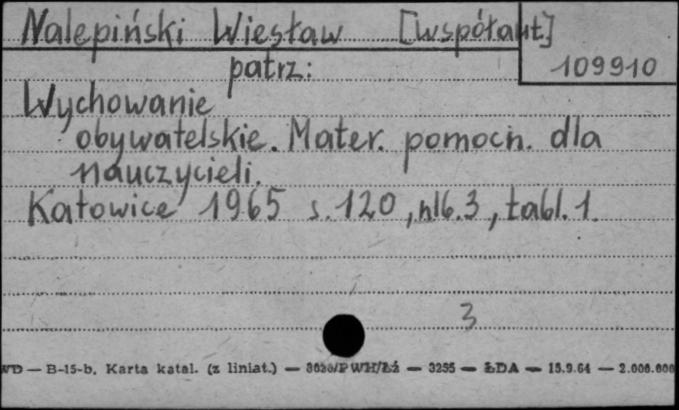 Nalepiński Wiesław [współaut]
109910
patrz:
Wychowanie
obywatelskie. Mater. pomocn. dla
nauczycieli.
Katowice 1965 s. 120, nlb. 3, tabl. 1.
3
WD — B-15-b. Karta katal. (z liniat.) — 3626/PWH/Łż — 3255 — ŁDA — 15.9.64 — 2.000.000